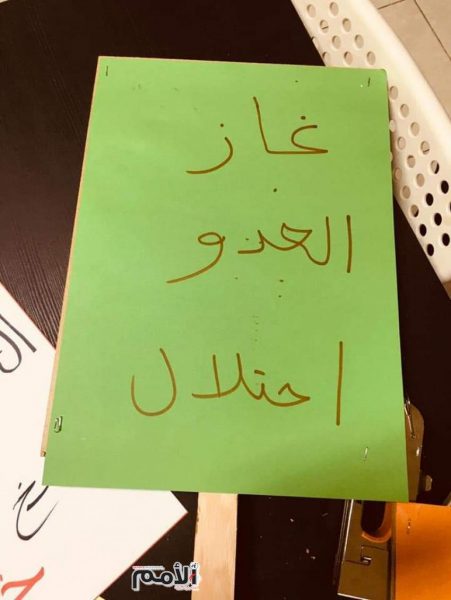 غاز
العدو
احتلال
الأمم